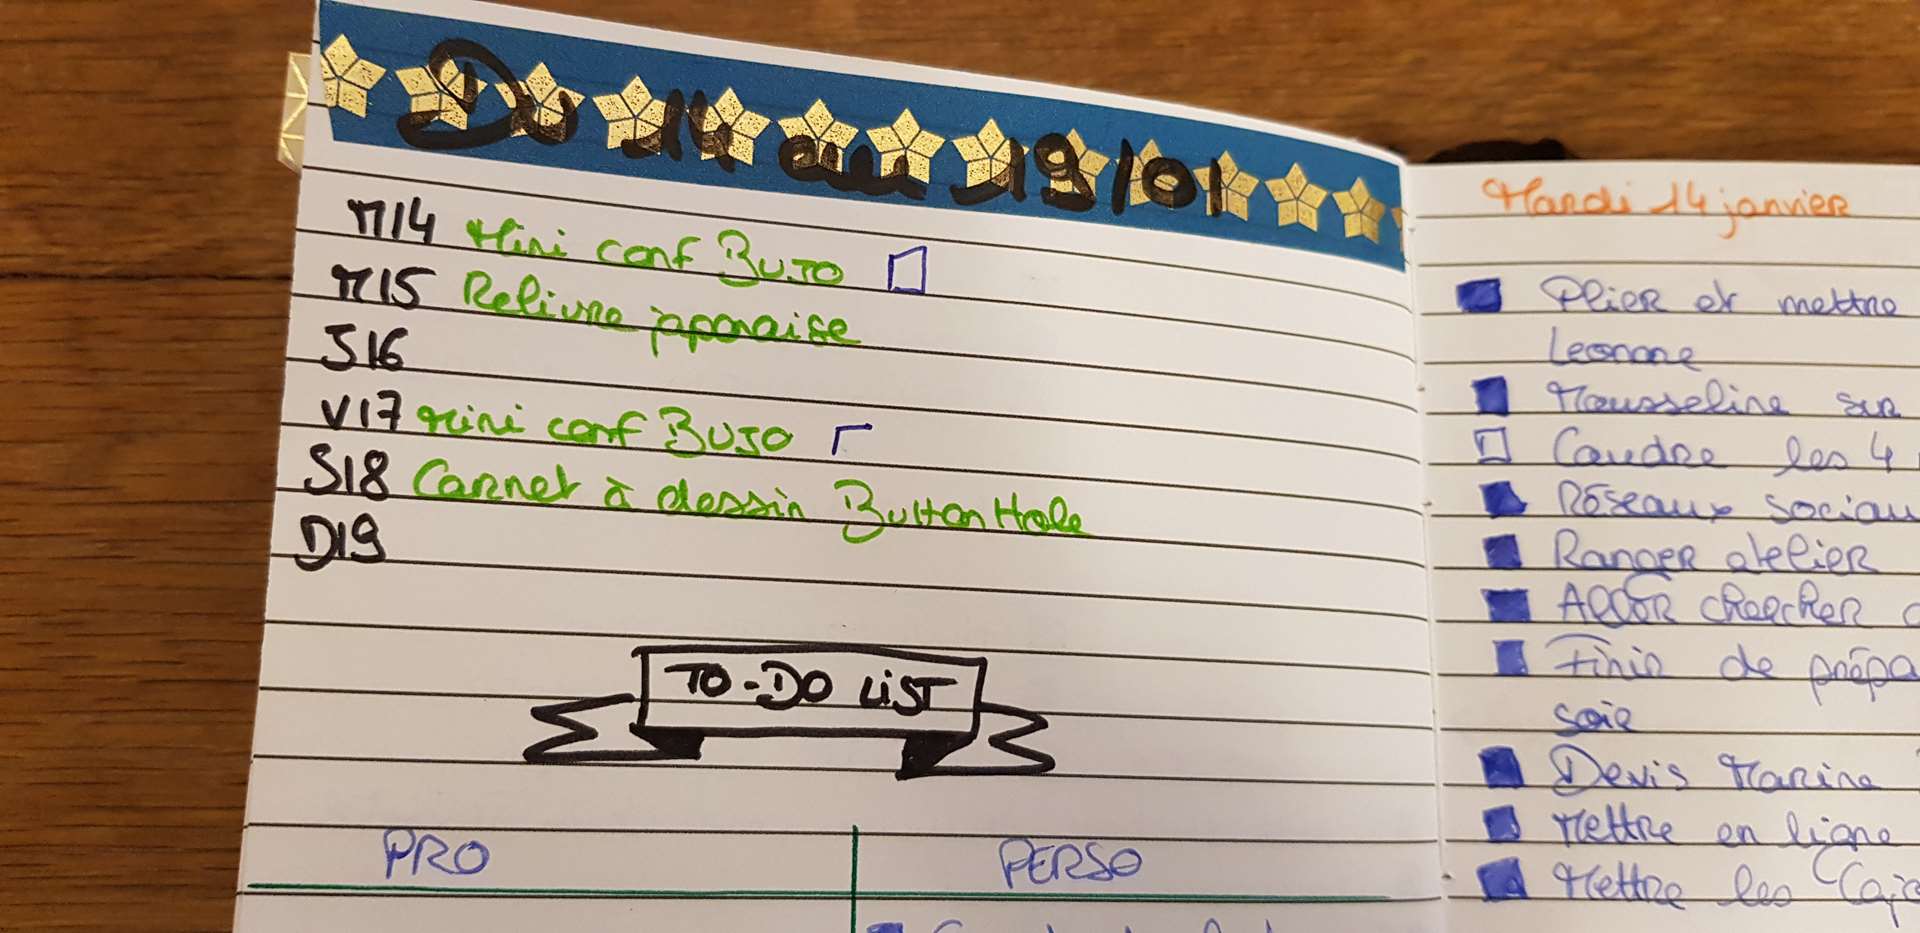 Du 14 au 19/01
M14 Mini conf BUJO
M15 Reliure japonaise
J16
V17 Mini conf BUJO
S18 Carnet à dessin Button Hole
D19
TO-DO LIST
PRO PERSO
Mardi 14 janvier
Plier et mettre
Leonore
Mousseline sur
Coudre les 4
Réseaux sociau
Ranger atelier
Aller chercher
Finir de prépa
soie
Devis Marine
Mettre en ligne
Mettre les